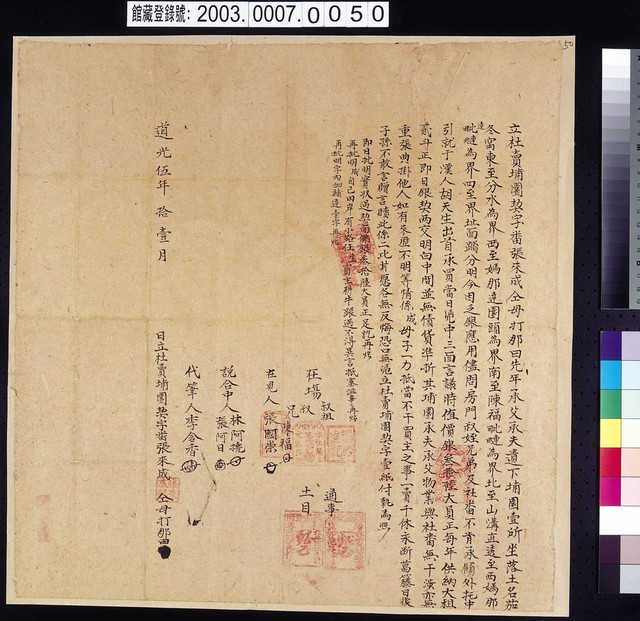 館藏登錄號: 2003.0007.0050
50
立杜賣埔園契字番張來成仝母打那曰先年承父承夫遺下埔園壹所坐落土名茄
冬窩東至分水為界西至媽那達園頭為界南至陳福毗嗹為界北至山溝直透至西媽那
達毗嗹為界四至界址面踏分明今因乏銀應用儘問房門叔姪兄弟及社番不肯承領外托中
引就于漢人胡天生出首承買當日憑中三面言議時值價銀叁拾陸大員正每年供納大租
貳斗正即日銀契兩交明白中間並無債貨準折其埔園承夫承父物業與社番無干涉亦無
重張典掛他人如有來歷不明等情係成母子一力抵當不干買主之事一賣千休永斷葛藤日後
子孫不敢言贈言贖此係二比甘愿各無反悔恐口無憑立杜賣埔園契字壹紙付執為照
即日批明實收過契面佛銀叁拾陸大員正足訖再炤
再批明成自己田岸有小路任生買主耕牛踏過不得異言抵塞滋事再炤
再批明字內加補達壹字再炤
叔祖
在場叔陳福
兄
在見人張國崇
說合中人林阿琥
張阿日
代筆人李念香
通事
土目
日立杜賣埔園契字番張來成仝母打那
道光伍年拾壹月